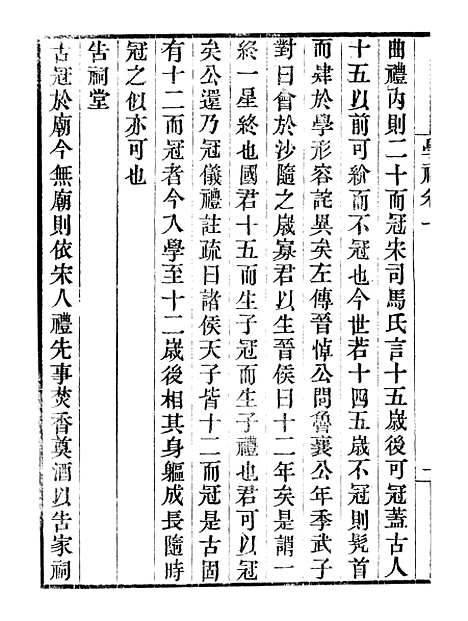 學禮卷一
一
曲禮內則二十而冠朱司馬氏言十五歲後可冠蓋古人
十五以前可紛而不冠也今世若十四五歲不冠則髧首
而肄於學形容詫異矣左傳晉悼公問魯襄公年季武子
對曰會於沙隨之歲寡君以生晉侯曰十二年矣是謂一
終一星終也國君十五而生子冠而生子禮也君可以冠
矣公還乃冠儀禮註疏曰諸侯天子皆十二而冠是古固
有十二而冠者今入學至十二歲後相其身軀成長隨時
冠之似亦可也
告祠堂
古冠於廟今無廟則依宋人禮先事焚香奠酒以告家祠